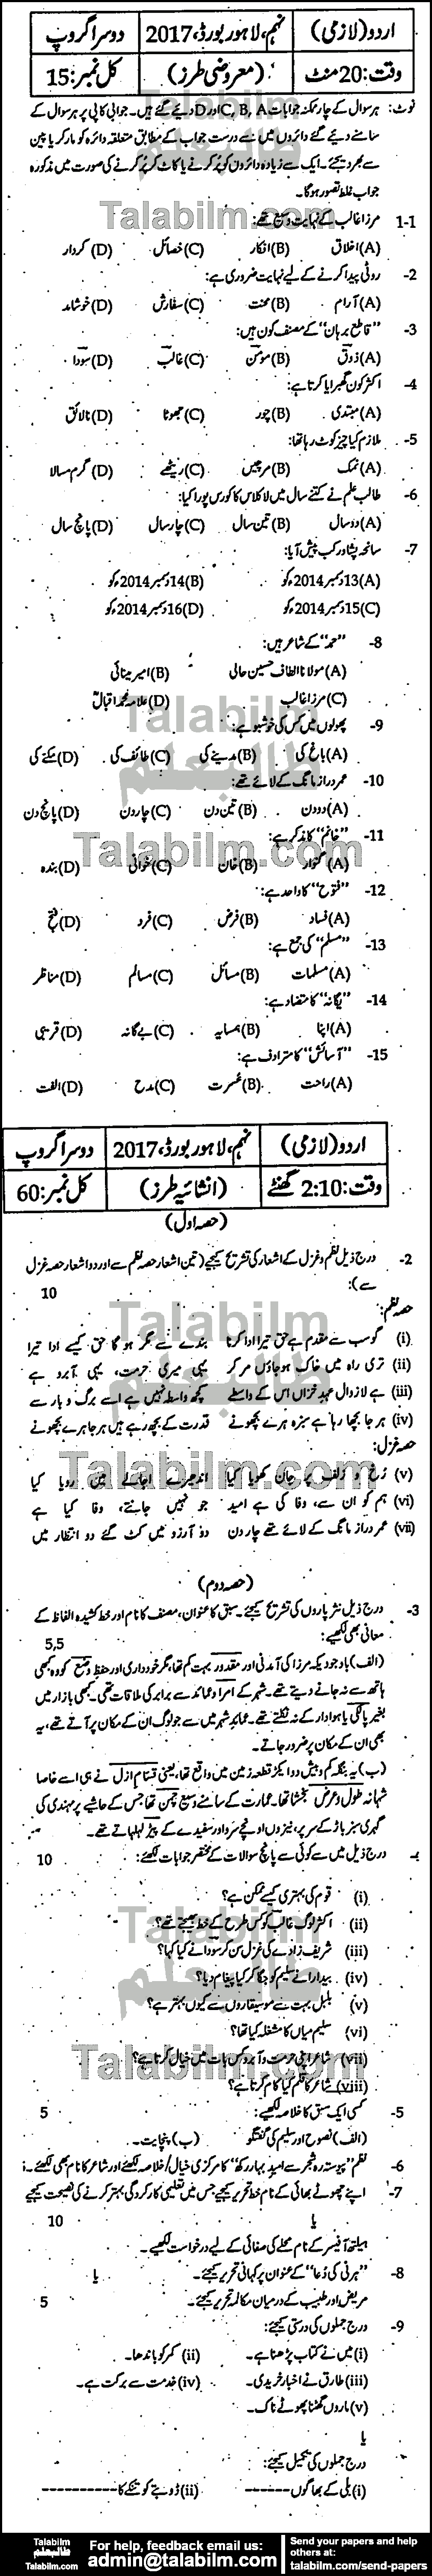 اردو (لازمی) نہم، لاہور بورڈ، 2017 دوسرا گروپ
وقت: 20 منٹ (معروضی طرز) کل نمبر: 15
نوٹ: ہر سوال کے چار ممکنہ جوابات A، B، C اور D دیئے گئے ہیں۔ جوابی کاپی پر ہر سوال کے
سامنے دیئے گئے دائروں میں سے درست جواب کے مطابق متعلقہ دائرہ کو مارکر یا پین
سے بھر دیجئے۔ ایک سے زیادہ دائروں کو پُر کرنے یا کاٹ کر پُر کرنے کی صورت میں مذکورہ
جواب غلط تصور ہوگا۔
1-1 مرزا غالب کے نہایت وسیع تھے:
(A) اخلاق (B) افکار (C) خصائل (D) کردار
2- روٹی پیدا کرنے کے لیے نہایت ضروری ہے:
(A) آرام (B) محنت (C) سفارش (D) خوشامد
3- "قاطع برہان" کے مصنف کون ہیں:
(A) ذوق (B) مومن (C) غالب (D) سودا
4- اکثر کون گھبرایا کرتا ہے:
(A) مبتدی (B) چور (C) جھوٹا (D) نالائق
5- ملازم کیا چیز کوٹ رہا تھا:
(A) نمک (B) مرچیں (C) ریٹھے (D) گرم مسالا
6- طالب علم نے کتنے سال میں لا کلاس کا کورس پورا کیا:
(A) دو سال (B) تین سال (C) چار سال (D) پانچ سال
7- سانحہ پشاور کب پیش آیا:
(A) 13 دسمبر 2014ء کو (B) 14 دسمبر 2014ء کو
(C) 15 دسمبر 2014ء کو (D) 16 دسمبر 2014ء کو
8- "حمد" کے شاعر ہیں:
(A) مولانا الطاف حسین حالی (B) امیر مینائی
(C) مرزا غالب (D) علامہ محمد اقبالؒ
9- پھولوں میں کس کی خوشبو ہے:
(A) باغ کی (B) مدینے کی (C) طائف کی (D) مکے کی
10- عمر دراز مانگ کے لائے تھے:
(A) دو دن (B) تین دن (C) چار دن (D) پانچ دن
11- "خانم" کا مذکر ہے:
(A) گنوار (B) خان (C) خوانی (D) بندہ
12- "فتوح" کا واحد ہے:
(A) فساد (B) فرض (C) فرد (D) فتح
13- "مسلم" کی جمع ہے:
(A) مسلمات (B) مسائل (C) مسالم (D) مناظر
14- "یگانہ" کا متضاد ہے:
(A) اپنا (B) ہمسایہ (C) بے گانہ (D) قریبی
15- "آسائش" کا مترادف ہے:
(A) راحت (B) عسرت (C) مدح (D) الفت
اردو (لازمی) نہم، لاہور بورڈ، 2017 دوسرا گروپ
وقت: 2:10 گھنٹے (انشائیہ طرز) کل نمبر: 60
(حصہ اول)
2- درج ذیل نظم و غزل کے اشعار کی تشریح کیجیے (تین اشعار حصہ نظم سے اور دو اشعار حصہ غزل
سے): 10
حصہ نظم:
(i) گو سب سے مقدم ہے حق تیرا ادا کرنا بندے سے مگر ہو گا حق کیسے ادا تیرا
(ii) تری راہ میں خاک ہو جاؤں مر کر یہی میری حرمت، یہی آبرو ہے
(iii) ہے لازوال عہدِ خزاں اس کے واسطے کچھ واسطہ نہیں ہے اسے برگ و بار سے
(iv) ہر جا بچھا رہا ہے سبزہ ہرے بچھونے قدرت کے بچھ رہے ہیں ہر جا ہرے بچھونے
حصہ غزل:
(v) رُخ و زلف پر جان کھویا کیا اندھیرے اجالے میں رویا کیا
(vi) ہم کو ان سے، وفا کی ہے امید جو نہیں جانتے، وفا کیا ہے
(vii) عمر دراز مانگ کے لائے تھے چار دن دو آرزو میں کٹ گئے دو انتظار میں
(حصہ دوم)
3- درج ذیل نثر پاروں کی تشریح کیجئے۔ سبق کا عنوان، مصنف کا نام اور خط کشیدہ الفاظ کے
معانی بھی لکھیے: 5,5
(الف) باوجودیکہ مرزا کی آمدنی اور مقدور بہت کم تھا، مگر خودداری اور حفظِ وضع کو وہ کبھی
ہاتھ سے نہ جانے دیتے تھے۔ شہر کے امرا و عمائد سے برابر کی ملاقات تھی۔ کبھی بازار میں
بغیر پالکی یا ہوادار کے نہ نکلتے تھے۔ عمائدِ شہر میں سے جو لوگ ان کے مکان پر آتے تھے، یہ
بھی ان کے مکان پر ضرور جاتے۔
(ب) یہ بنگلہ کم و بیش دو ایکڑ قطعہ زمین میں واقع تھا، یعنی قسامِ ازل نے ہی اسے خاصا
شاہانہ طول و عرض بخشا تھا۔ عمارت کے سامنے وسیع چمن تھا جس کے حاشیے پر مہندی کی
گہری سبز باڑ کے سر پر، نیزوں اونچے سرو اور سفیدے کے پیڑ لہلہاتے تھے۔
درج ذیل میں سے کوئی سے پانچ سوالات کے مختصر جوابات لکھئے: 10
(i) قوم کی بہتری کیسے ممکن ہے؟
(ii) اکثر لوگ غالب کو کس طرح کے خط بھیجتے تھے؟
(iii) شریف زادے کی غزل سن کر سودا نے کیا کہا؟
(iv) بیدارا نے سلیم کو جگا کر کیا پیغام دیا؟
(v) بلبل بہت سے موسیقاروں سے کیوں بہتر ہے؟
(vi) سلیم میاں کا مشغلہ کیا تھا؟
(vii) شاعر اپنی حرمت و آبرو کس بات میں خیال کرتا ہے؟
(viii) شاعر کا قلم کیا کام کرتا ہے؟
5- کسی ایک سبق کا خلاصہ لکھیے: 5
(الف) نصوح اور سلیم کی گفتگو (ب) پنچایت۔
6- نظم "پیوستہ رہ شجر سے امید بہار رکھ" کا مرکزی خیال/خلاصہ لکھئے اور شاعر کا نام بھی لکھئے۔
7- اپنے چھوٹے بھائی کے نام خط تحریر کیجیے جس میں تعلیمی کارکردگی بہتر کرنے کی نصیحت کیجیے
یا 10
ہیلتھ آفیسر کے نام محلے کی صفائی کے لیے درخواست لکھیے۔
8- "ہرنی کی دُعا" کے عنوان پر کہانی تحریر کیجئے۔ یا
مریض اور طبیب کے درمیان مکالمہ تحریر کیجئے۔ 5
9- درج جملوں کی درستی کیجئے:
(i) میں نے کتاب پڑھنا ہے۔ (ii) کمر کو باندھا۔
(iii) طارق نے اخبار خریدی۔ (iv) خدمت سے برکت ہے۔
(v) ماروں گھٹنا پھوٹے ناک۔
یا
درج جملوں کی تکمیل کیجئے:
(i) بلی کے بھاگوں ------ (ii) ڈوبتے کو تنکے کا ----------
Talabilm.com
طالبعلم
Talabilm.com
Talabilm.com
طالبعلم
Talabilm.com
Talabilm.com
طالبعلم
Talabilm.com
Talabilm.com
طالبعلم
Talabilm.com
Talabilm
طالبعلم
Talabilm.com
For help, feedback email us:
admin@talabilm.com
Send your papers and help
others at:
talabilm.com/send-papers